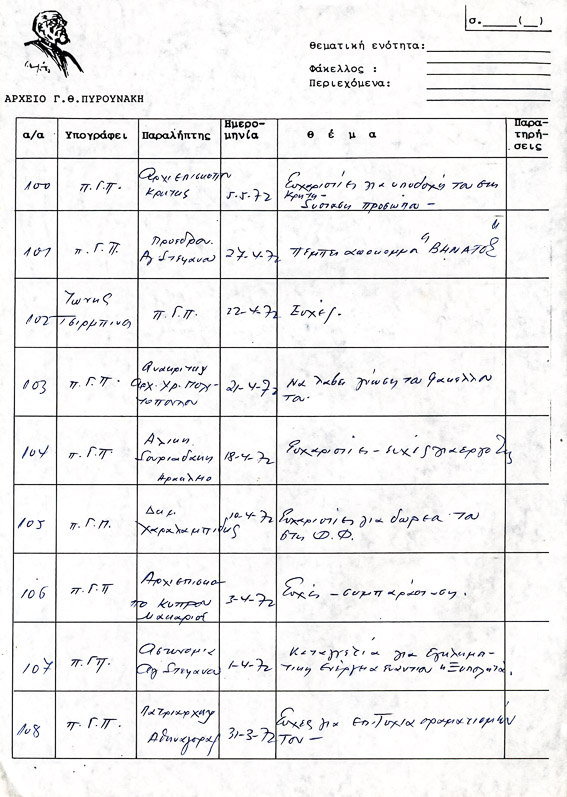 σ.____(__)
Θεματική ενότητα:
Φάκελλος :
Περιεχόμενα:
ΑΡΧΕΙΟ Γ.Θ.ΠΥΡΟΥΝΑΚΗ
α/α Υπογράφει Παραλήπτης Ημερο-μηνία θ έ μ α Παρα-τηρή-σεις
100 π.Γ.Π. Αρχιεπίσκοπο
Κρήτης 5-5-72 Ευχαριστίες για υποδοχή του στη
Κρήτη-
Σύσταση προσώπου -
101 π.Γ.Π. Πρόεδρον
Αγ Στεφάνου 27-4-72 πέμπει απόκομμα "ΒΗΜΑΤΟΣ"
102 Τσιρμπίνος π.Γ.Π. 22-4-72 Ευχές.
103 π.Γ.Π. Ανακριτήν
Αρχ. Χρ.
21-4-72 Να λάβει γνώση του φακέλλου
του.
104 π.Γ.Π. Αλίκη
Σουριαδάκη
Ηράκλειο 18-4-72 Ευχαριστίες - ευχές για εργο της
105 π.Γ.Π. Δημ.
Χαραλαμπίδης 10-4-72 Ευχαριστίες για δωρεά του
στη Φ.Φ.
106 π.Γ.Π Αρχιεπίσκο-
πο Κύπρου
Μακάριο 3-4-72 Ευχές - συμπαράσταση.
107 π.ΓΠ. Αστυνομία
Αγ Στεφάνου 1-4-72 Καταγγελία για Εγκλημα-
τική Ενέργεια εναντίον
108 π.Γ.Π. Πατριάρχην
Αθηναγόραν 31-3-72 Ευχές για επιτυχία οραματισμών
του -